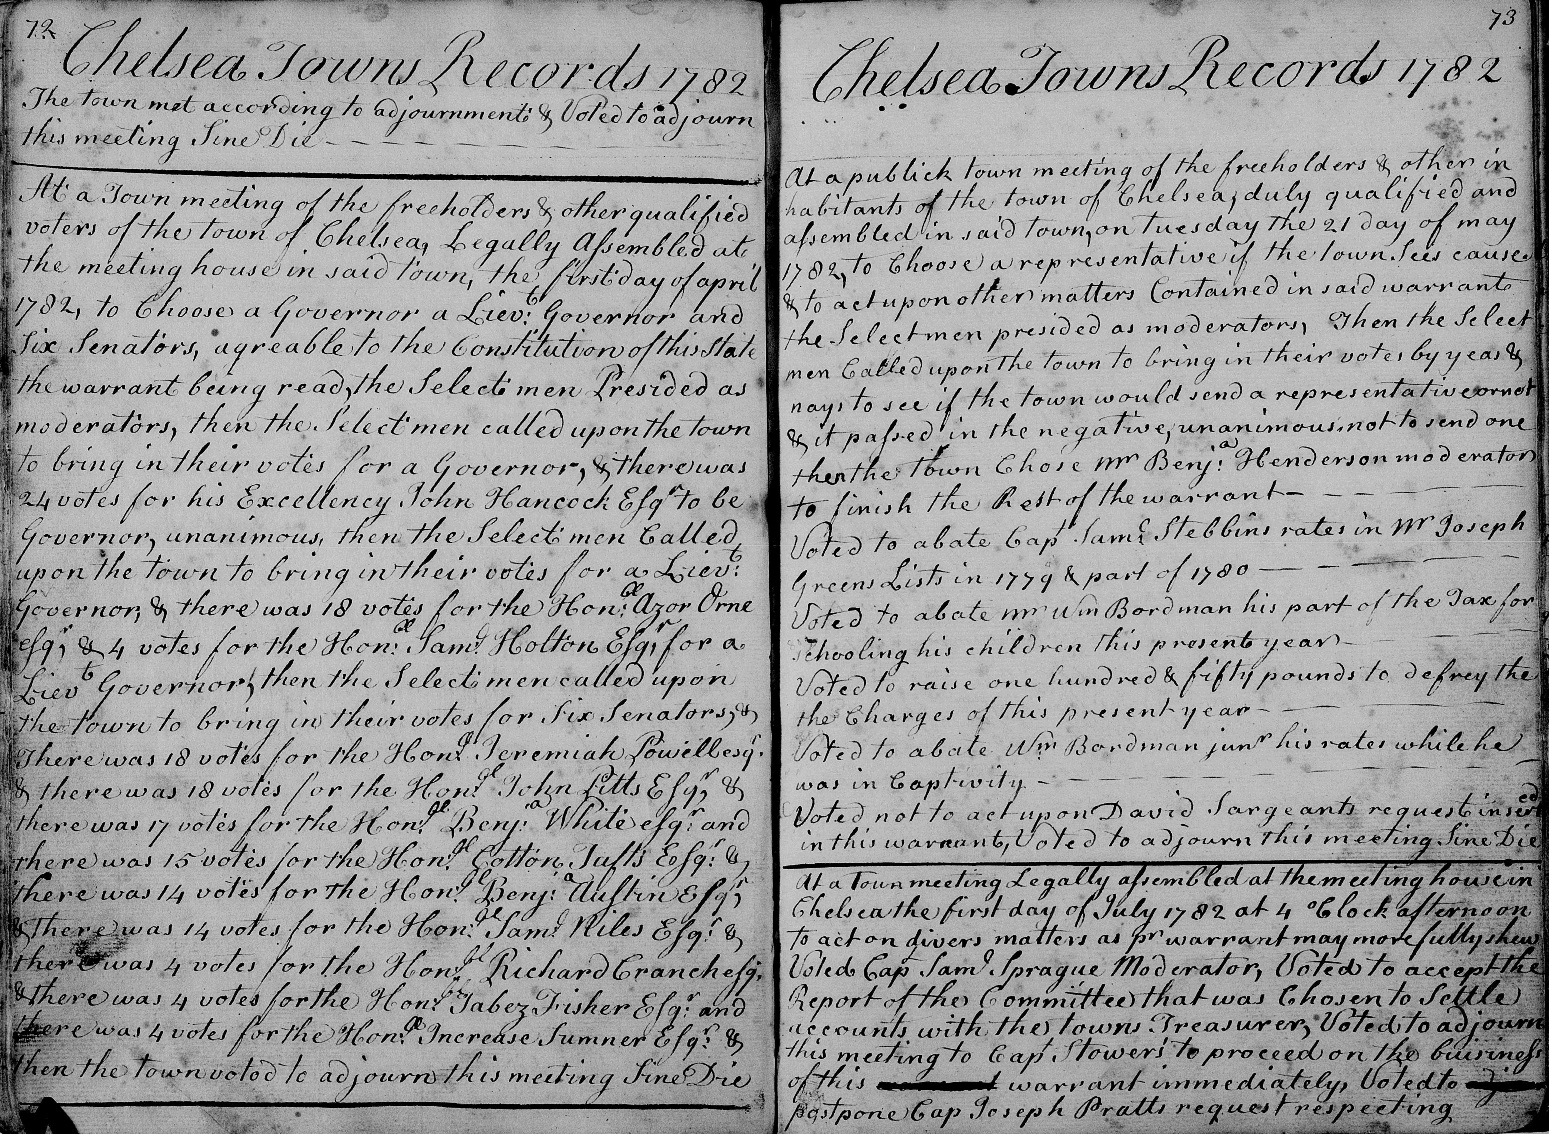 72
Chelsea Towns Records 1782
The town met according to adjournment & Voted to adjourn
this meeting Sine Die
At a Town meeting of the freeholders & other qualified
voters of the town of Chelsea, Legally Assembled at
the meeting house in said town, the first day of april
1782, to Choose a Governor a Lievt: Governor and
Six Senators, agreable to the Constitution of this State
the warrant being read, the Select men Presided as
moderators, then the Select men called upon the town
to bring in their votes for a Governor, & there was
24 votes for his Excellency John Hancock Esqr to be
Governor, unanimous, then the Select men Called
upon the town to bring in their votes for a Lievt:
Governor, & there was 18 votes for the Honble: Azor Orne
esqr, & 4 votes for the Honble: Saml Holton Esqr, for a
Lievt Governor, then the Select men called upon
the town to bring in their votes for Six Senators, &
There was 18 votes for the Honble Jeremiah Powell esqr.
& there was 18 votes for the Honble John Pitts Esqr, &
there was 17 votes for the Honble Benja: White esqr: and
there was 15 votes for the Honble Cotton Tufts Esqr: &
there was 14 votes for the Honble Benja: Austin Esqr,
& there was 14 votes for the Honble Saml Niles Esqr: &
there was 4 votes for the Honble Richard Cranch esqr,
& there was 4 votes for the Honble Jabez Fisher Esqr: and
there was 4 votes for the Honble Increase Sumner Esqr: &
then the town voted to adjourn this meeting Sine Die
73
Chelsea Towns Records 1782
At a publick town meeting of the freeholders & other in
habitants of the town of Chelsea, duly qualified and
assembled in said town, on tuesday the 21 day of may
1782, to Choose a representative if the town Sees cause
& to act upon other matters Contained in said warrant
the Select men presided as moderators, Then the Select
men Called upon the town to bring in their votes by yeas &
nays to see if the town would send a representative or not
& it passed in the negative, unanimous, not to send one
then the town Chose mr Benja: Henderson moderator
to finish the Rest of the warrant
Voted to abate Capt Saml: Stebbins rates in Mr Joseph
Greens Lists in 1779 & part of 1780
Voted to abate mr Wm Bordman his part of the Tax for
schooling his children this present year
Voted to raise one hundred & fifty pounds to defrey the
the Charges of this present year
Voted to abate Wm Bordman junr his rates while he
was in Captivity
Voted not to act upon David Sargeants request inserted
in this warrant, Voted to adjourn this meeting Sine Die
At a town meeting Legally assembled at the meeting house in
Chelsea the first day of July 1782 at 4 oClock afternoon
to act on divers matters as pr warrant may more fully shew
Voted Capt Saml Sprague Moderator, Voted to accept the
Report of the Committee that was Chosen to Settle
accounts with the towns Treasurer, Voted to adjourn
this meeting to Capt Stowers to proceed on the buisiness
of this warrant immediately, Voted to
postpone Cap Joseph Pratts request respecting